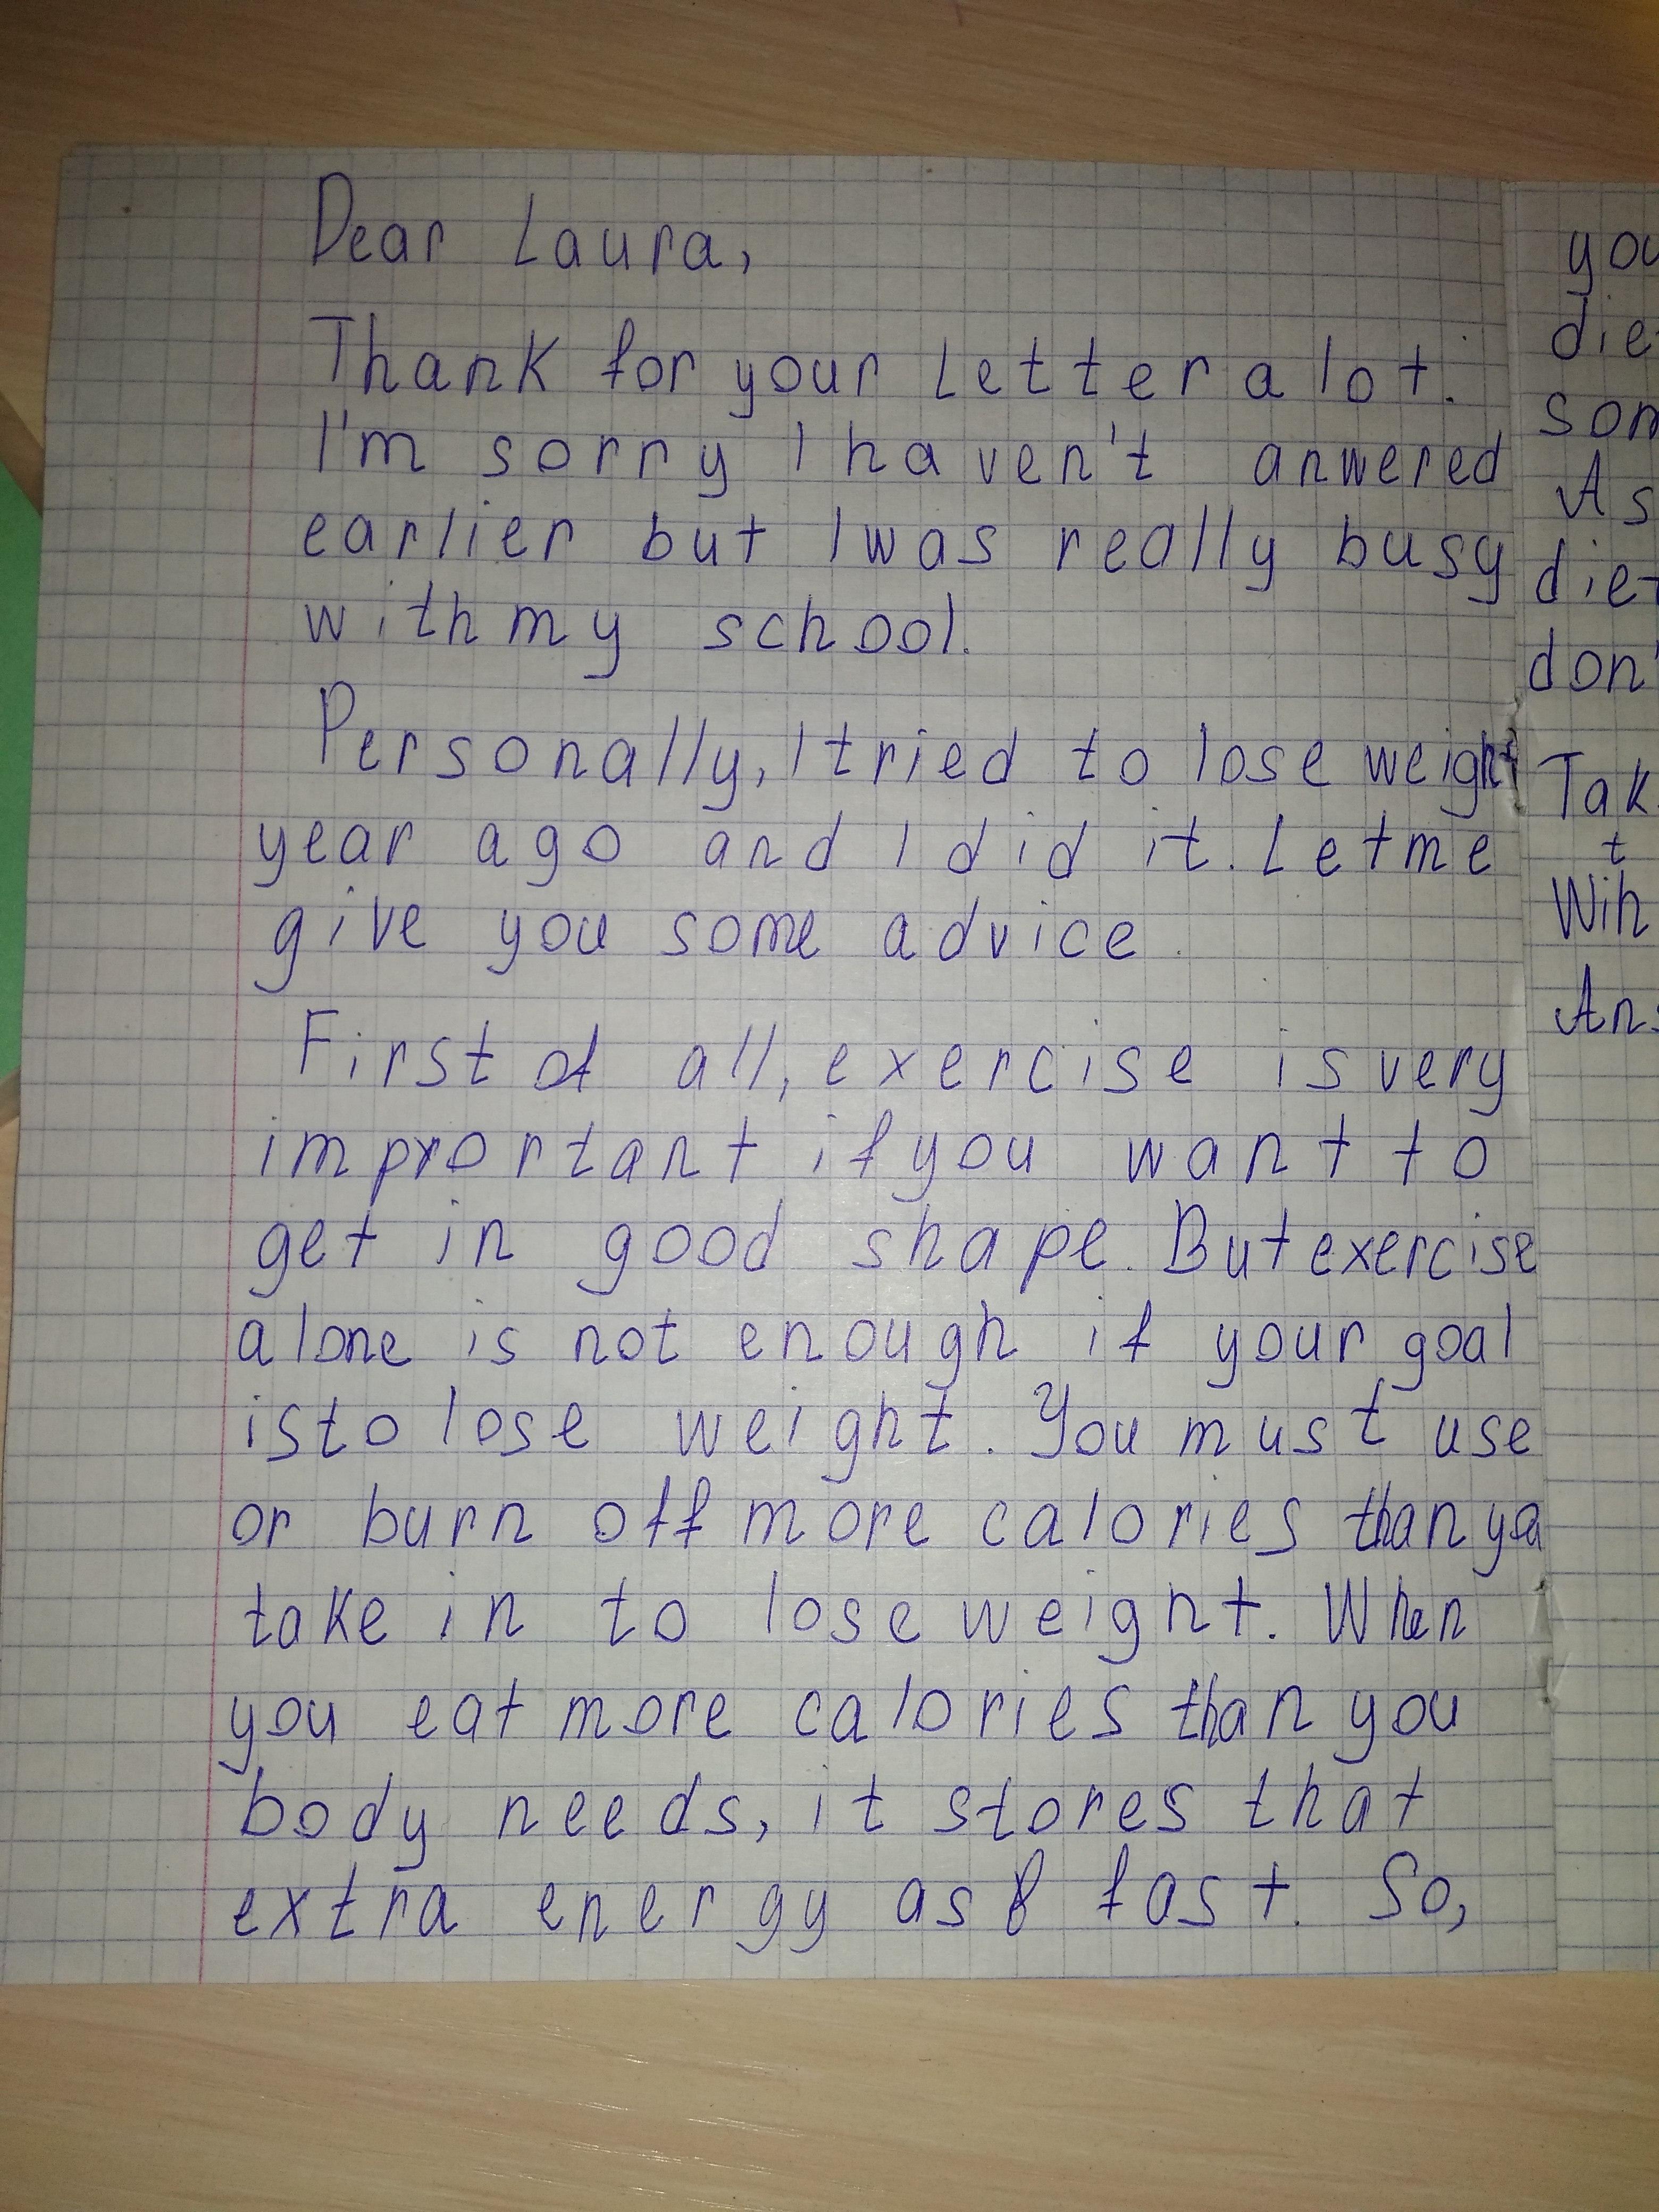 Dear Laura,
Thank for your Letter a lot.
I'm sorry I haven't anwered
earlier but I was really busy
with my school.
Personally, I tried to lose weight
year ago and I did it. Let me
give you some advice.
First of all, exercise is very
important if you want to
get in good shape. But exercise
alone is not enough if your goal
is to lose weight. You must use
or burn off more calories than you
take in to lose weight. When
you eat more calories than you
body needs, it stores that
extra energy as fast. So,
you
die
som
As
diet
don'
Tak
t
Wih
Ans